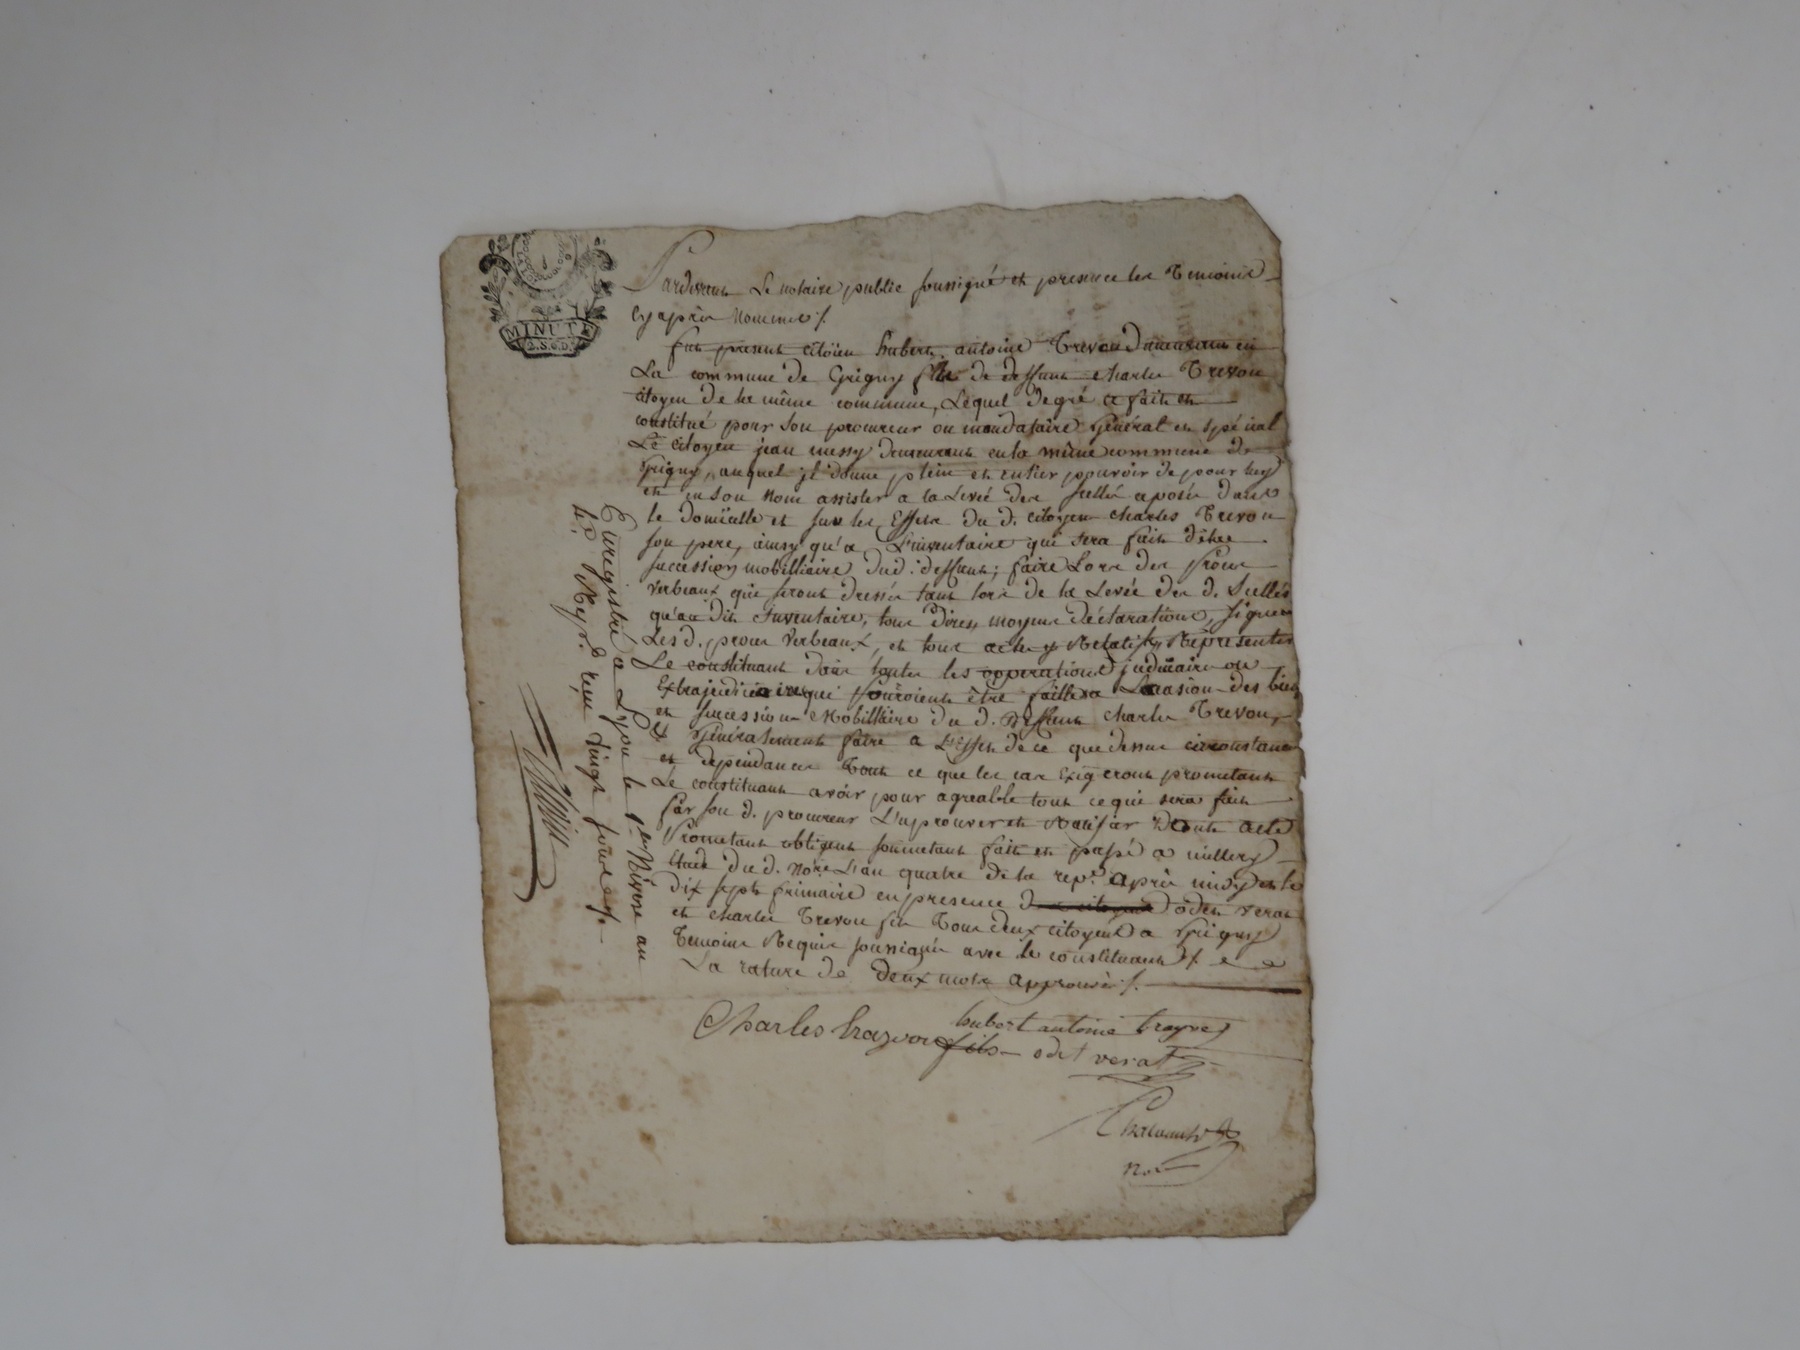 MINUTE
2. S. 6. D.
Pardevant Le notaire public soussigné et presence les Temoins
cy après nommes /.
fut present citöien hubert antoine Trevou demeurant en
La commune de Grigny fils de deffunt charles Trevou
citoyen de la même commune, Lequel de gré a fait et
constitué pour son procureur ou mandataire Général et spécial
Le citoyen jean demeurant en la même commune de
Grigny, auquel jl donne plein et entier pouvoir de pour luy
et en son nom assister a la Levée des scellés aposés dans
le domicille et sur les Effets du d. citoyen charles Trevou
son pere, ainsy qu'a L'inventaire qui sera fait de la
succession mobilliaire dud. deffunt; faire Lors des Procès
verbeaux qui seront dressés tant lors de la Levée des d. Scellés
qu'au dit inventaire, tous dires, moyens déclarations, signer
Les d. procès verbeaux, et tous actes y Relatifs, Représenter
Le constituant dans toutes les opperations judiciaires ou
Extrajudiciaires qui pourroient être faittes a L'ocasion des biens
et succession Mobilliaire du d. Deffunt charles Trevou,
& Généralement faire a L'effet de ce que dessus circonstances
et dependances Tout ce que les cas Exigeront prometant
Le constituant avoir pour agreable tout ce qui sera fait
Par son d. procureur L'aprouver et Ratifier Dont acte
Prometant obligeant soumetant fait et passé a millery
Etude du d. Notre L'an quatre de la rep.e après midy et le
dix sept frimaire en presence des citoyens odet verat
et charles Trevou fils Tous deux citoyens a Grigny
Temoins Requis soussignés avec le constituant /.
La rature de deux mots approuvés /.
hubert antoine trayvou
Charles trayvou fils odet verat
nore
Enregistré a Lyon le 1.er Nivose an
4.e R. reçu vingt sous /.